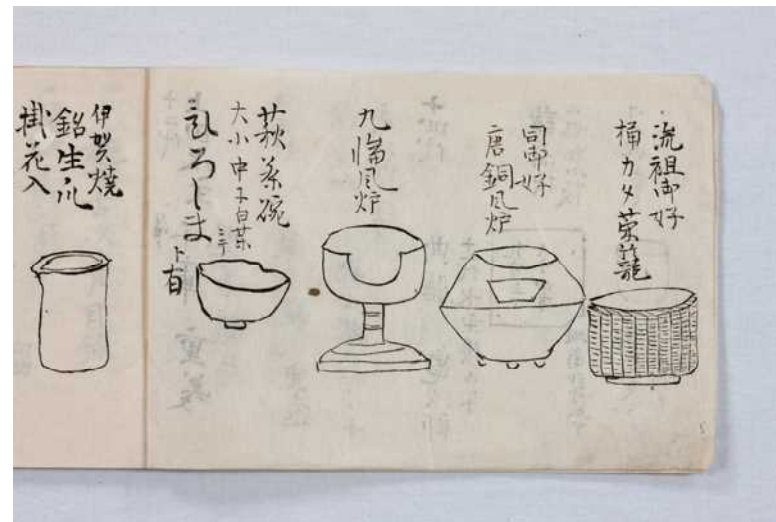 流祖御好
桶カタ菜籠
同御好
唐銅風炉
風炉
萩茶碗
大小中子白菜
ひろしま
ト有
伊賀焼
銘生爪
掛花入